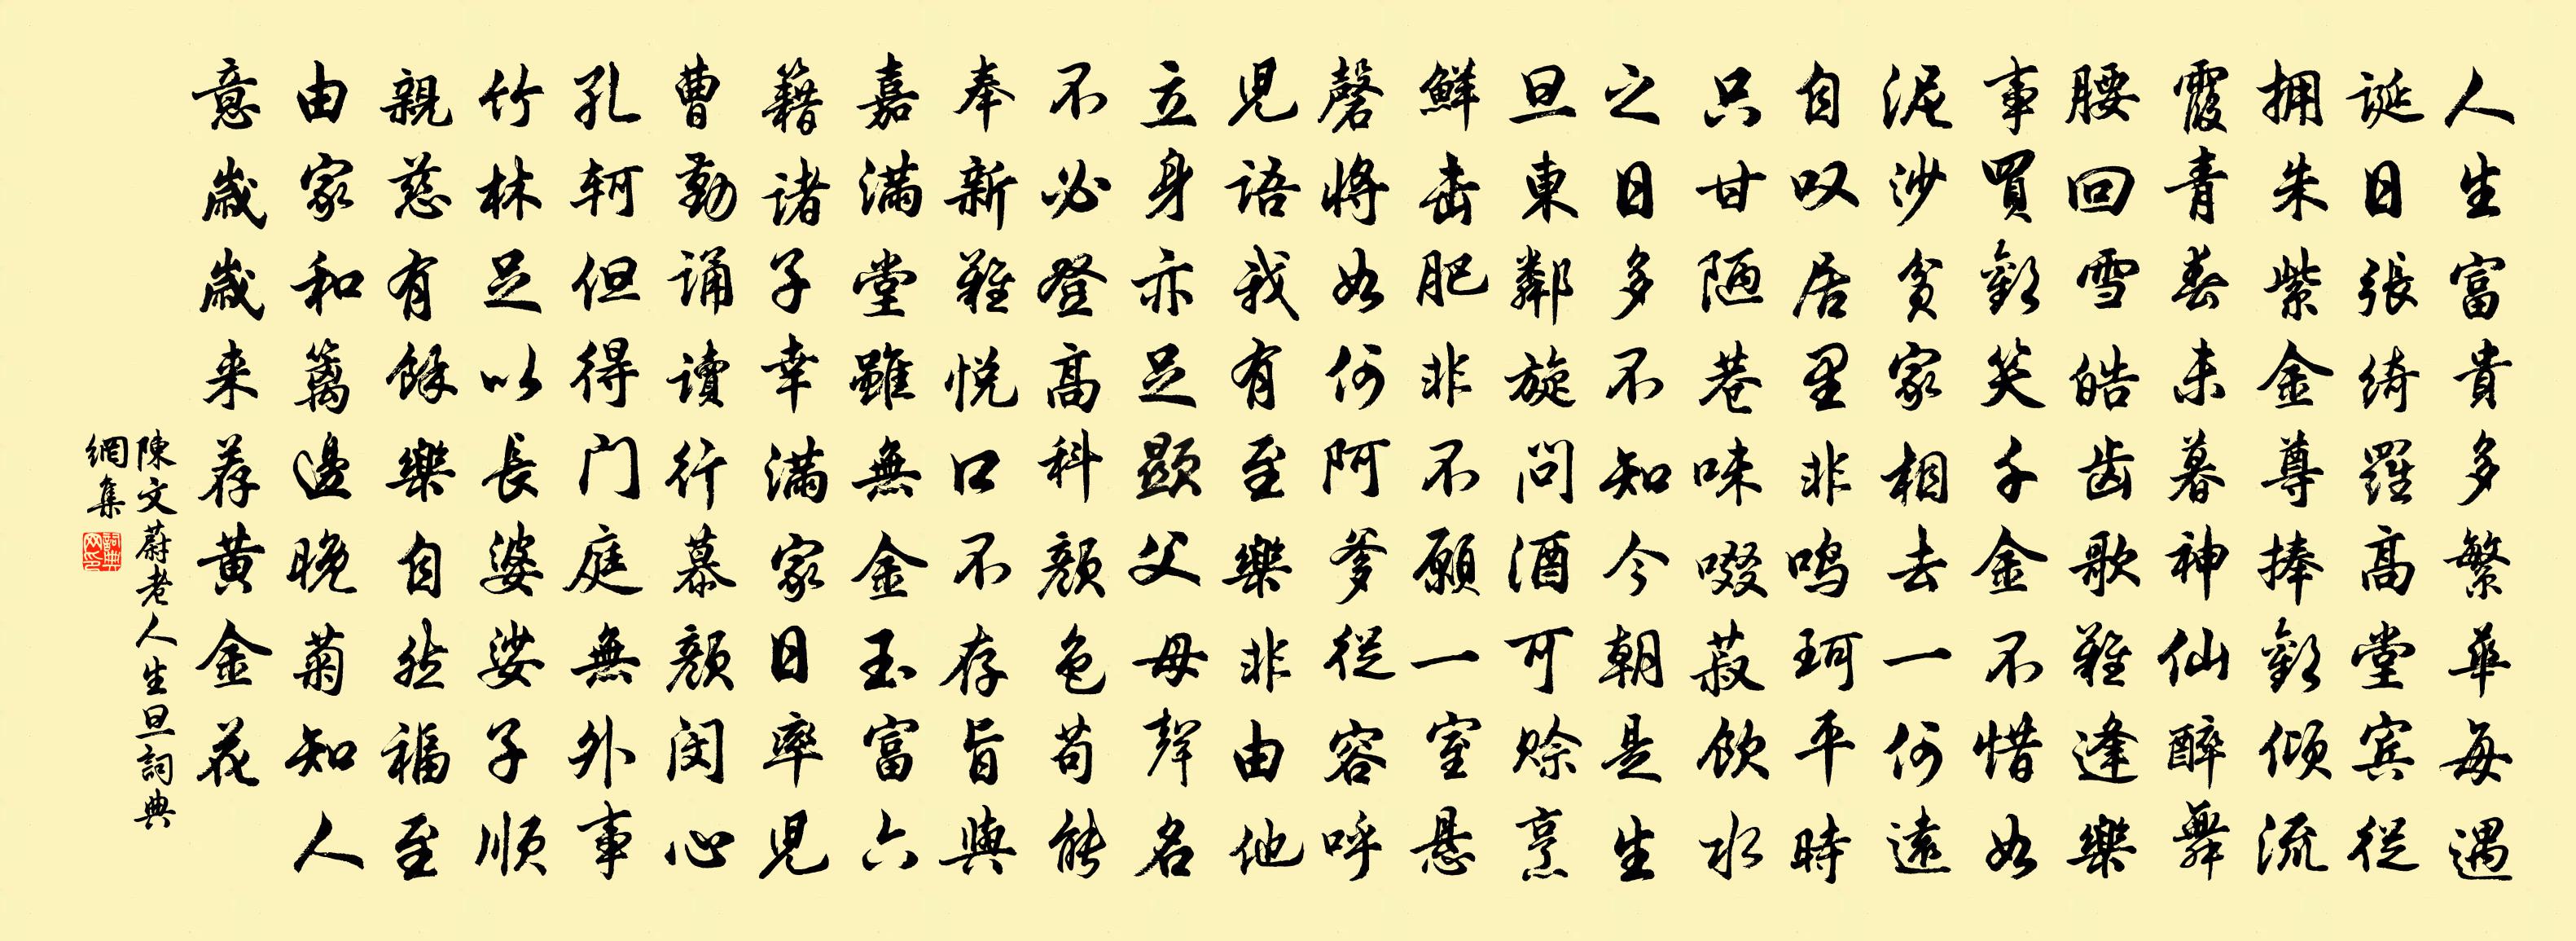 人生富貴多繁華每遇
誕日張綺羅高堂賓從
拥朱紫金尊捧歡傾流
霞青春未暮神仙醉舞
腰回雪皓齒歌難逢樂
事買歡笑千金不惜如
泥沙貧家相去一何遠
自叹居里非鳴珂平時
只甘陋巷味啜菽飲水
之日多不知今朝是生
旦東鄰旋問酒可賒烹
鮮击肥非不願一室悬
罄將如何阿爹從容呼
児語我有至樂非由他
立身亦足顯父母聲名
不必登高科顏色苟能
奉新難悦口不存旨與
嘉滿堂雖無金玉富六
籍诸子幸滿家日率児
曹勤诵讀行慕顏闵心
孔轲但得门庭無外事
竹林足以長婆娑子順
親慈有餘樂自然福至
由家和篱邊晚菊知人
意歲歲来荐黄金花
陳文蔚老人生旦詞典
網集